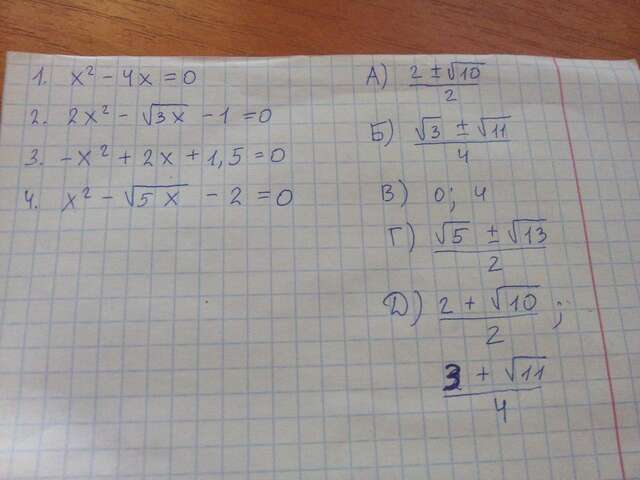 1. x² - 4x = 0
2. 2x² - √3x - 1 = 0
3. -x² + 2x + 1,5 = 0
4. x² - √5x - 2 = 0
А) (2 ± √10)/2
Б) (√3 ± √11)/4
В) 0; 4
Г) (√5 ± √13)/2
Д) (2 + √10)/2 ;
(3 + √11)/4